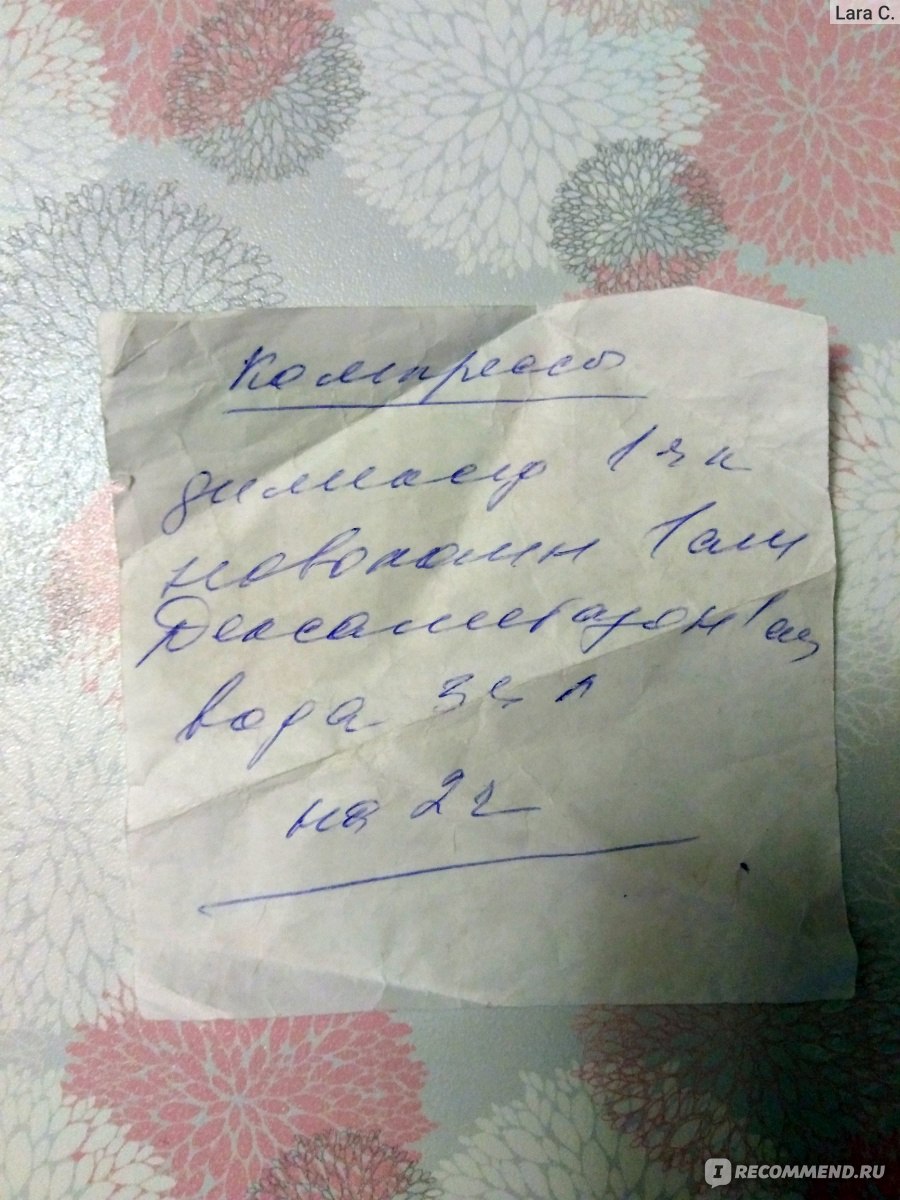 Lara C.
Компрессы
димексид 1 чл
новокаин 1 амп
Дексаметазон 1 амп
вода 3 ч л
на 2 ч
IRECOMMEND.RU